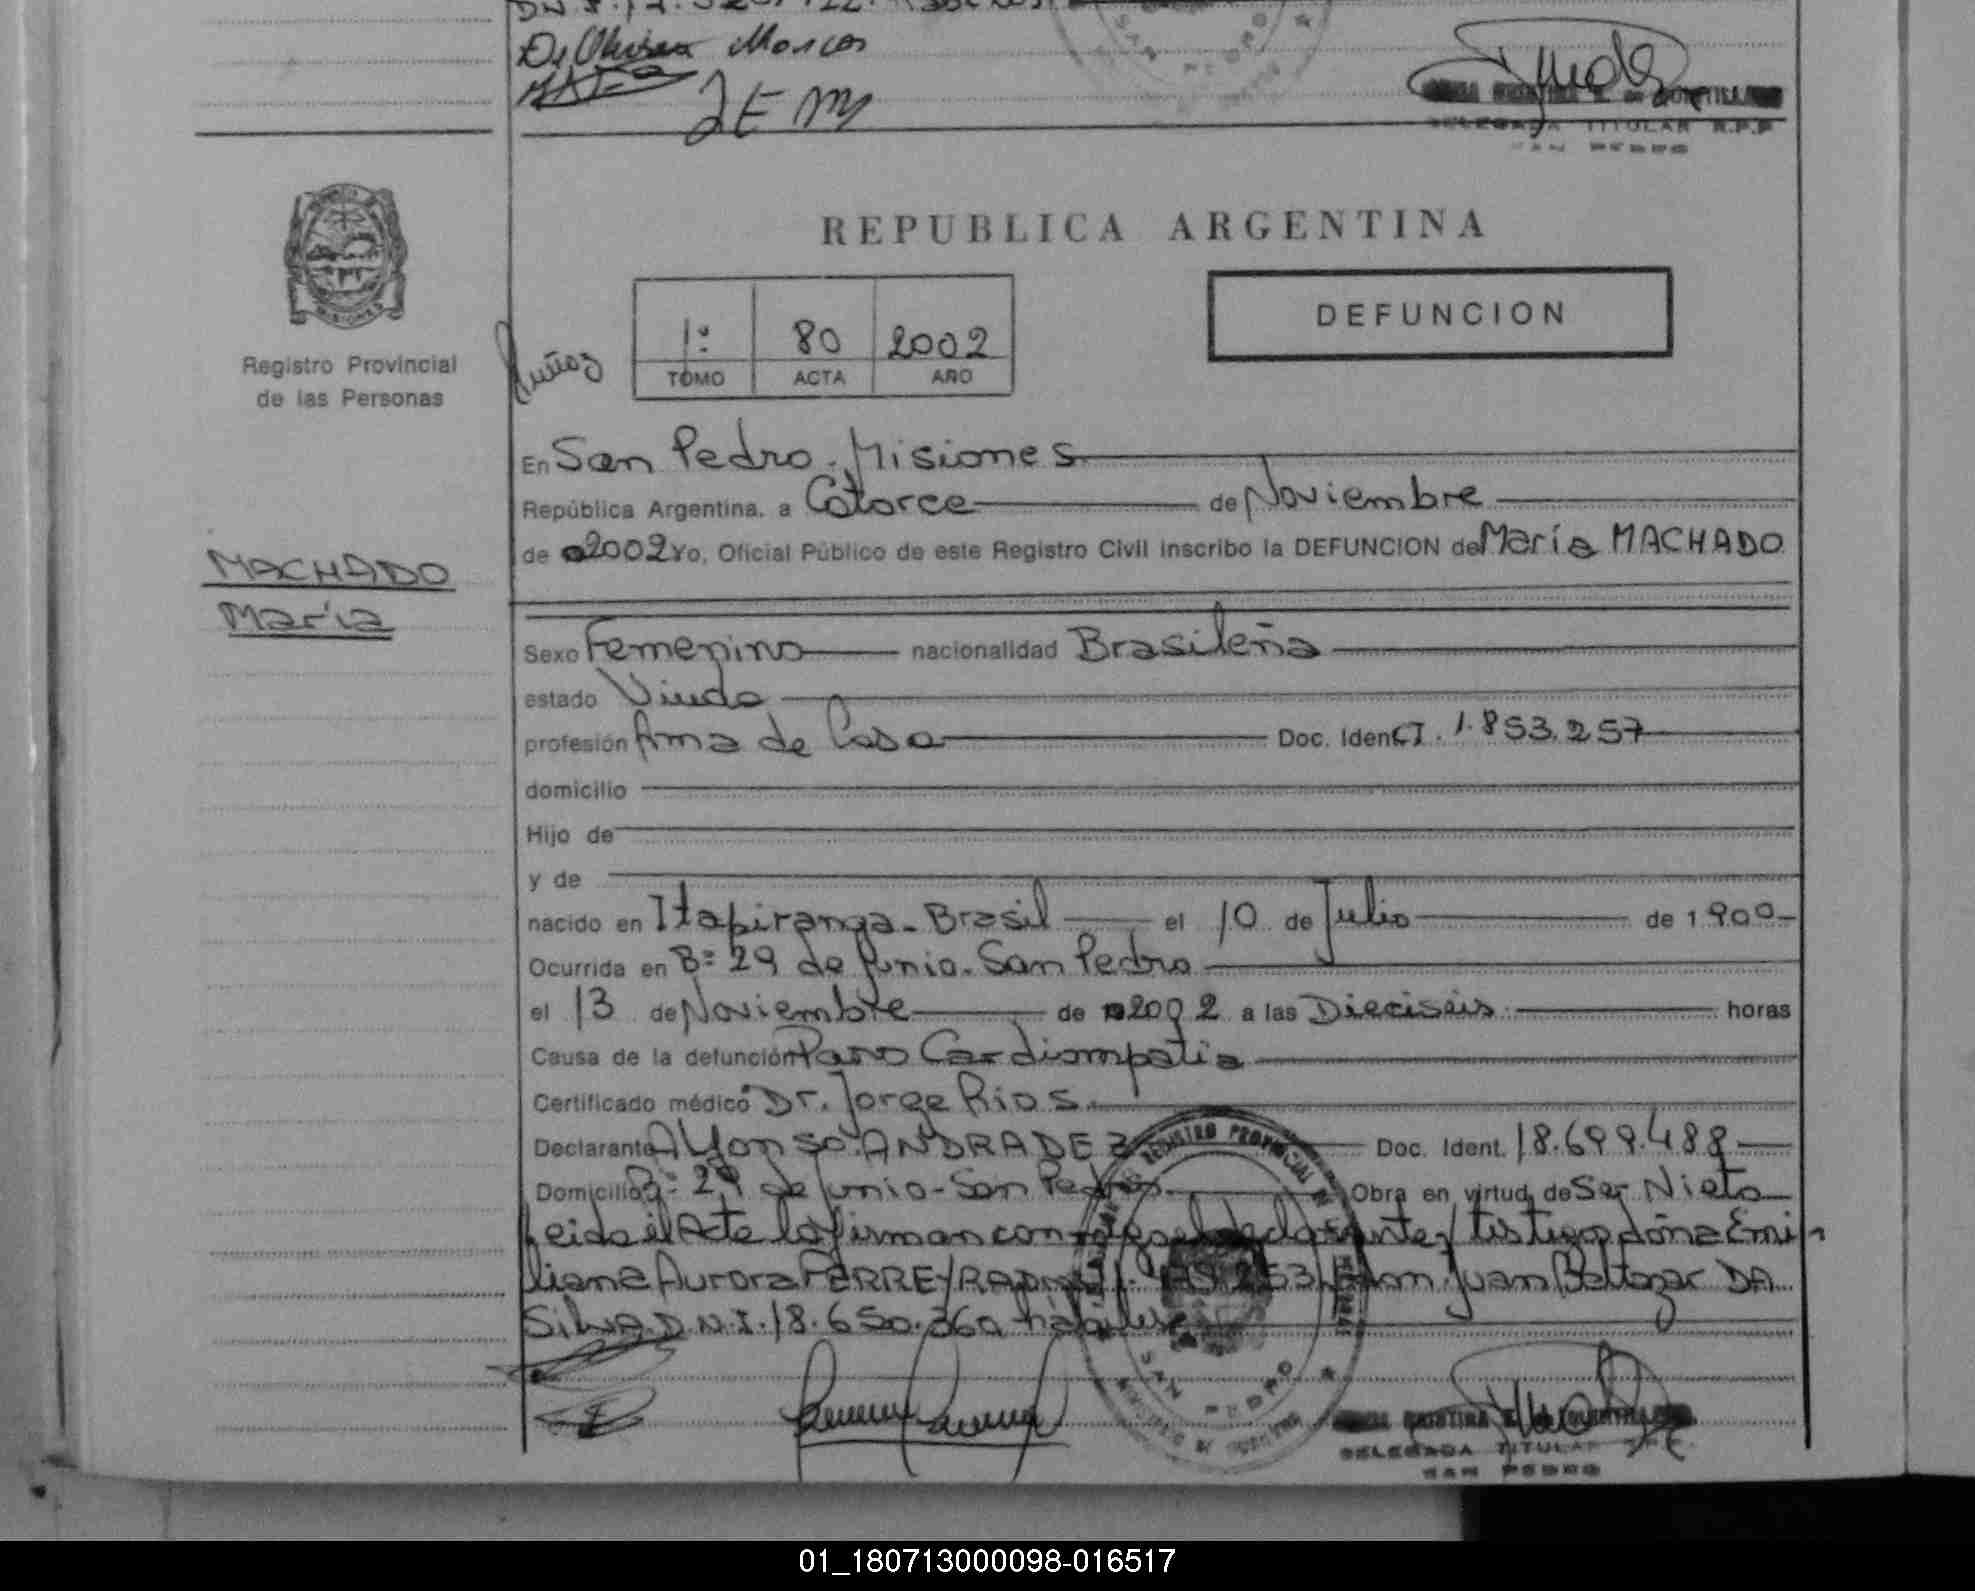 Marcos
JEM
DELEGADA TITULAR R.P.P
SAN PEDRO
REPUBLICA ARGENTINA
MISIONES
Registro Provincial
de las Personas
1º 80 2002
TOMO ACTA AÑO
DEFUNCION
MACHADO
María
En San Pedro. Misiones
República Argentina, a Catorce de Noviembre
de 2002 Yo, Oficial Público de este Registro Civil inscribo la DEFUNCION de María MACHADO
Sexo Femenino nacionalidad Brasileña
estado Viuda
profesión Ama de Casa Doc. Iden CI. 1.853.257
domicilio
Hijo de
y de
nacido en Itapiranga - Brasil el 10 de Julio de 1900
Ocurrida en Bº 29 de Junio. San Pedro
el 13 de Noviembre de 2002 a las Dieciseis horas
Causa de la defunción Paro Cardiompatia
Certificado médico Dr. Jorge Rios.
Declarante Alfonso ANDRADE Doc. Ident. 18.699.488
Domicilio Bº 29 de Junio - San Pedro Obra en virtud de Ser Nieto
Leida el Acta la firman con el declarante y testigos doña Emi
liana Aurora FERREYRA don Juan Baltazar DA
SilvA D.N.I. 18.650.360 habiles
REGISTRO PROVINCIAL DE
SAN PEDRO
DELEGADA TITULAR
SAN PEDRO
01_180713000098-016517